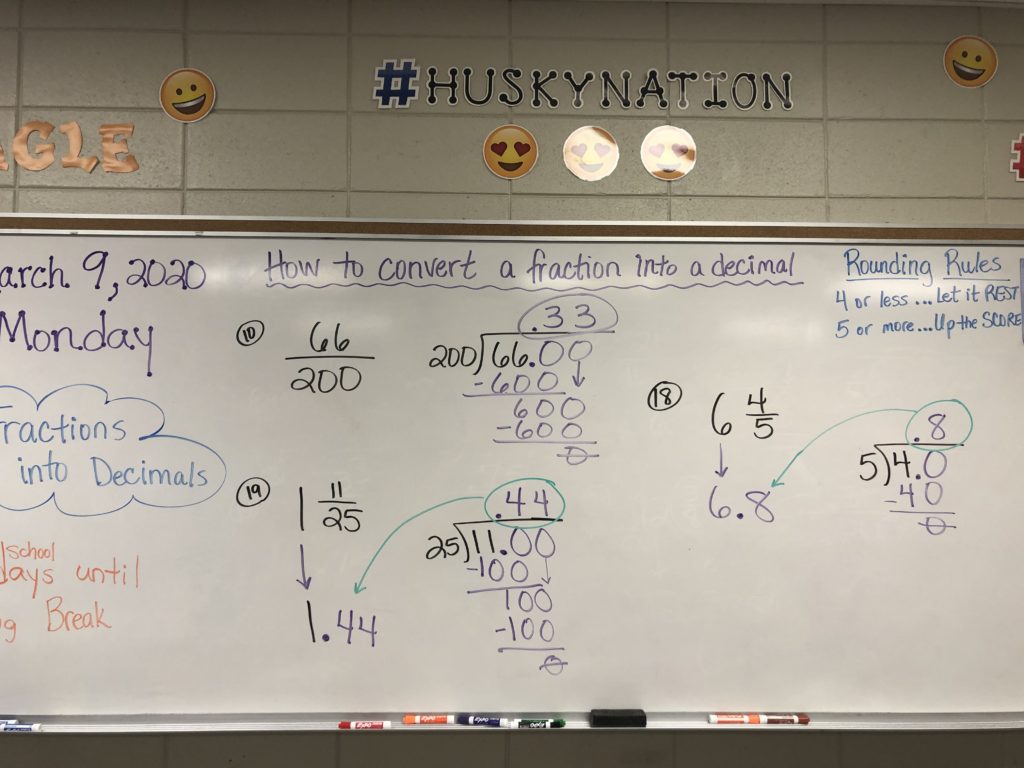 #HUSKYNATION
AGLE
arch 9, 2020
Monday
ractions
into Decimals
school
days until
g Break
How to convert a fraction into a decimal
⑩ 66/200
.33
200)66.00
-600
600
-600
0
⑲ 1 11/25
1.44
.44
25)11.00
-100
100
-100
0
Rounding Rules
4 or less...Let it REST
5 or more...Up the SCORE
⑱ 6 4/5
6.8
.8
5)4.0
-40
0
EXPO
EXPO
EXPO
EXPO